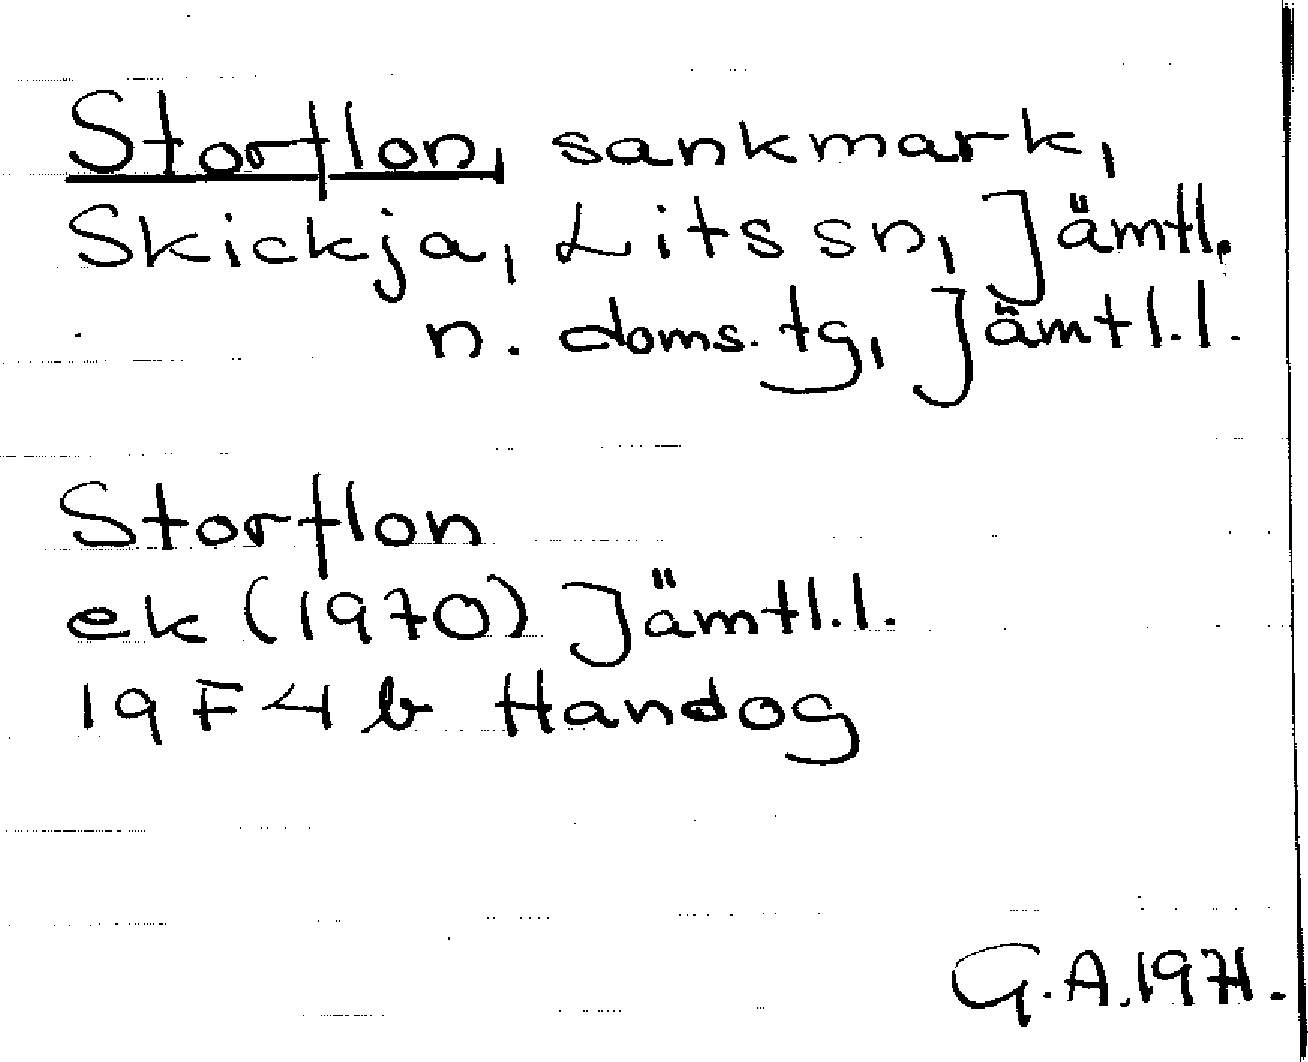 Storflon, sankmark,
Skickja, Lits sn, Jämtl.
n. doms. tg, Jämtl. l.
Storflon
ek (1970) Jämtl. l.
19 F 4 b Handog
G. A. 1971.